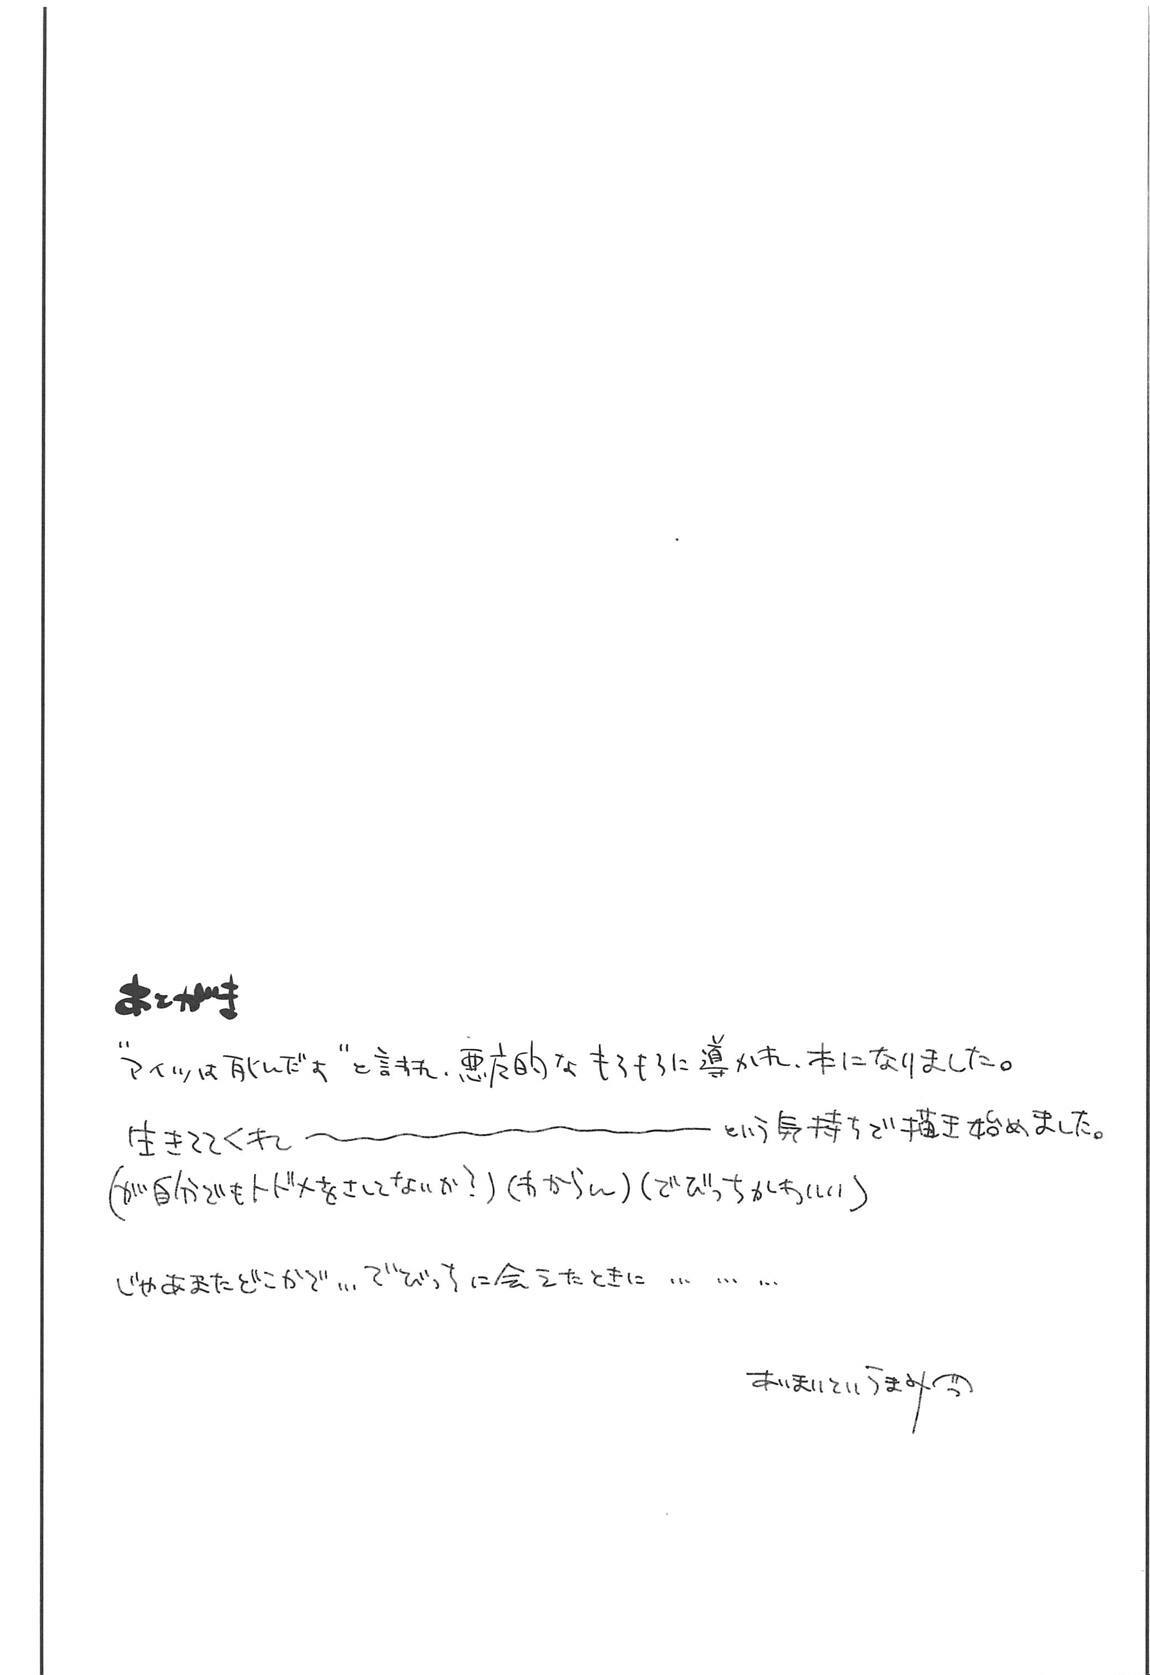 あとがき
"アイツは死んだよ"と言われ、悪魔的なもろもろに導かれ、本になりました。
生きててくれ〜〜〜〜〜〜という気持ちで描き始めました。
(が自分でもトドメをさしてないか?)(わからん)(でびっちかわいい)
じゃあまたどこかで…でびっちに会えたときに… … …
あいまいというまみ